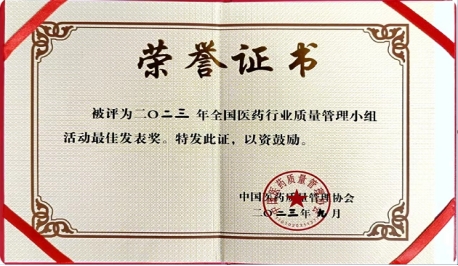 荣誉证书
被评为二〇二三年全国医药行业质量管理小组
活动最佳发表奖。特发此证，以资鼓励。
中国医药质量管理协会
二〇二三年九月